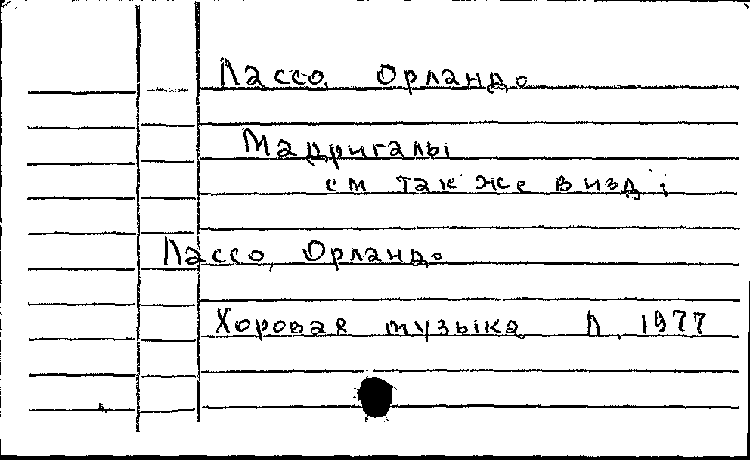 Лассо, Орландо
Мадригалы
см также в изд:
Лассо, Орландо
Хоровая музыка Л. 1977